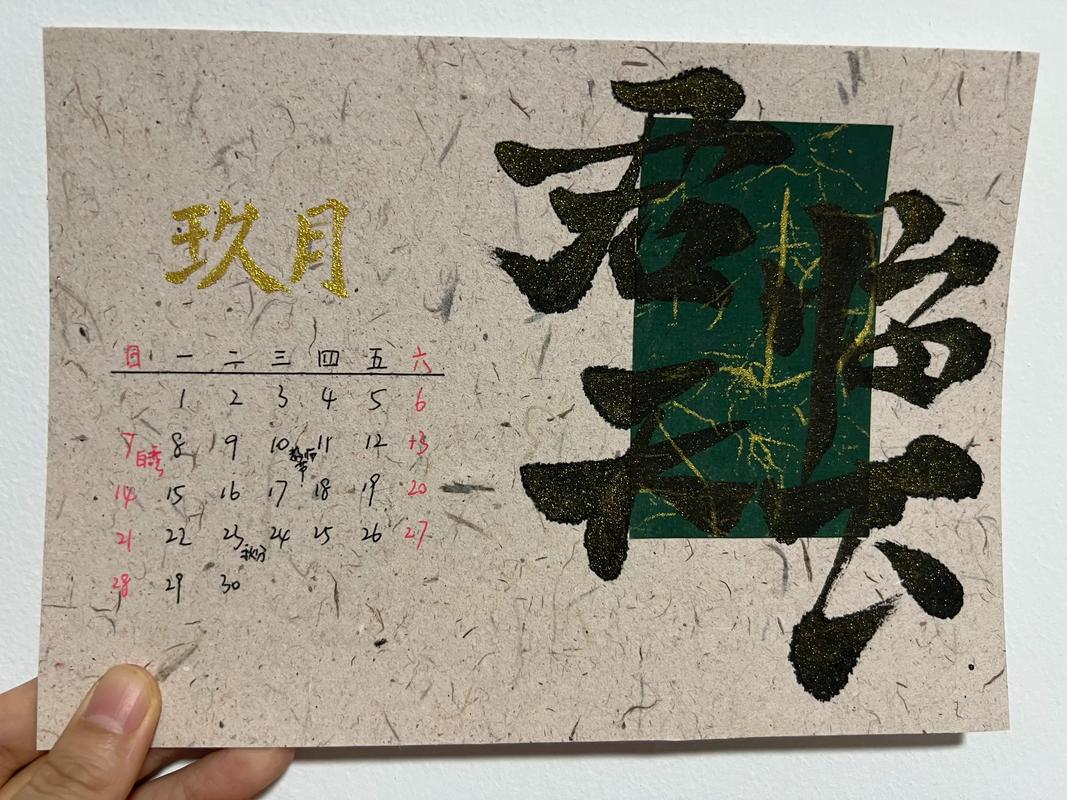 玖月
日 一 二 三 四 五 六
1 2 3 4 5 6
7 白露 8 9 10 教师节 11 12 13
14 15 16 17 18 19 20
21 22 23 秋分 24 25 26 27
28 29 30
君临
天下